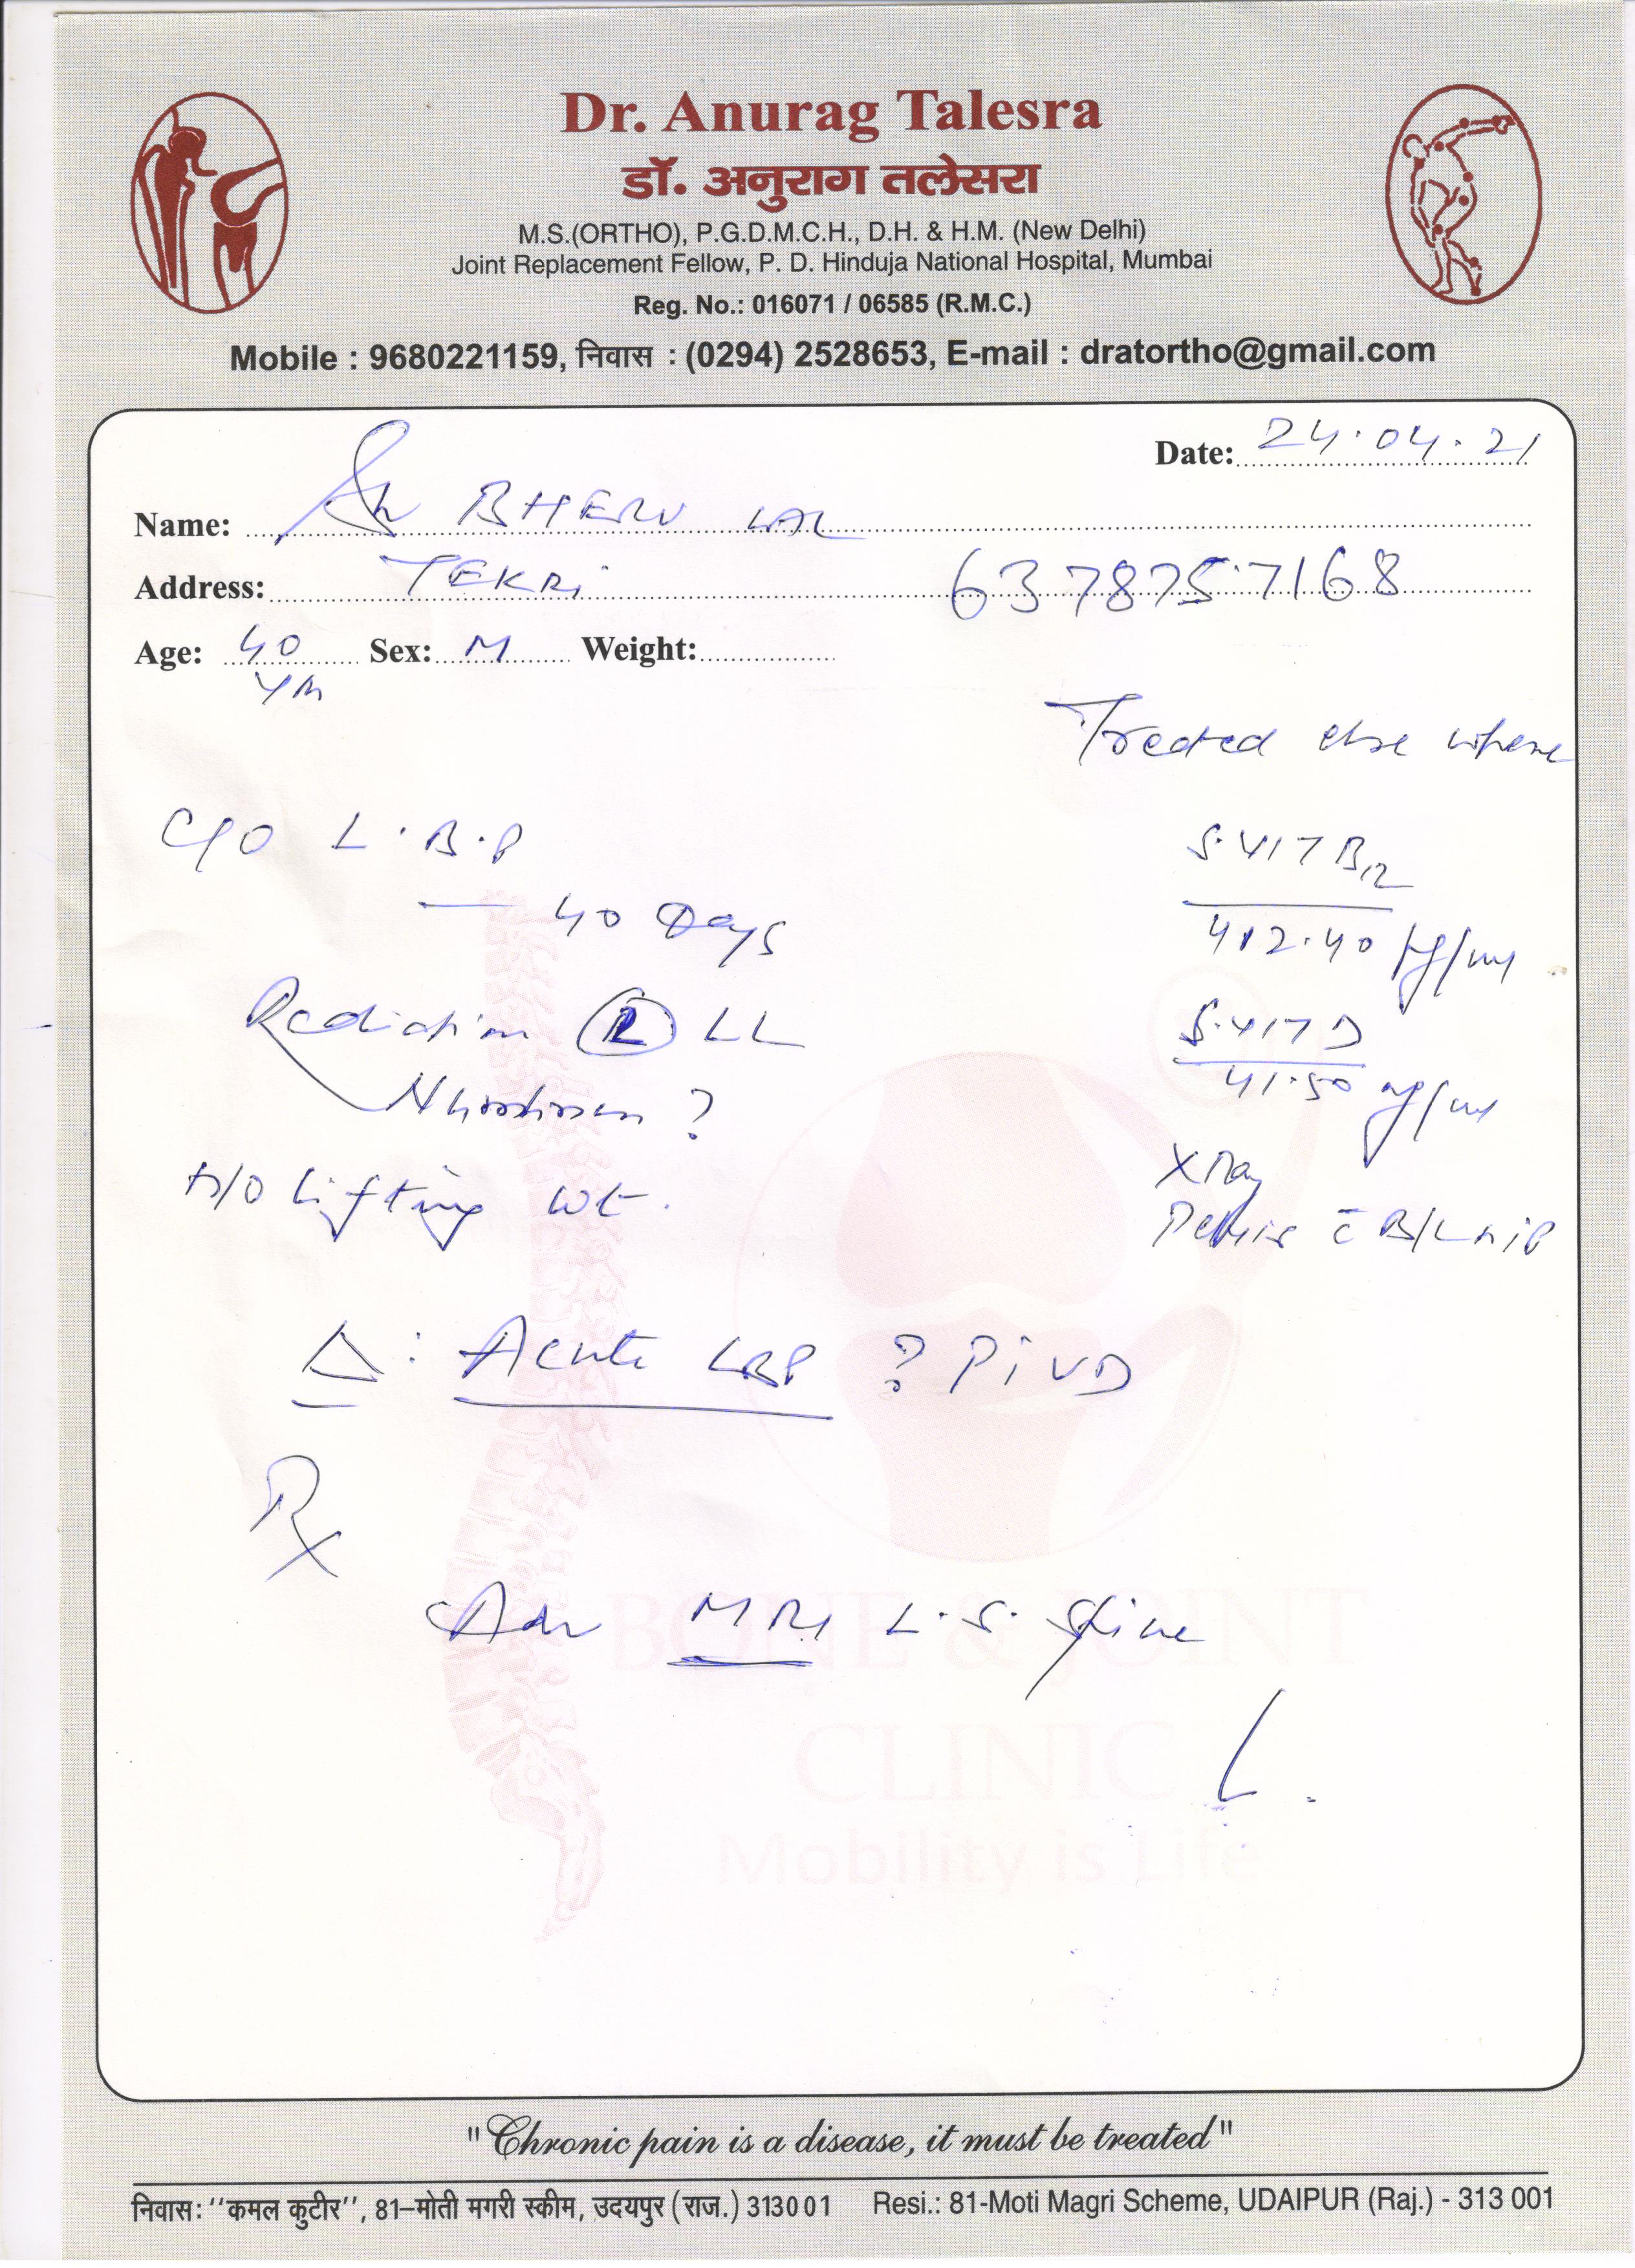 Dr. Anurag Talesra
डॉ. अनुराग तलेसरा
M.S.(ORTHO), P.G.D.M.C.H., D.H. & H.M. (New Delhi)
Joint Replacement Fellow, P. D. Hinduja National Hospital, Mumbai
Reg. No.: 016071 / 06585 (R.M.C.)
Mobile : 9680221159, निवास : (0294) 2528653, E-mail : dratortho@gmail.com
Date: 24.04.21
Name: Sh BHERU LAL
Address: TEKRI 6378757168
Age: 40 Sex: M Weight:
Treated else where
C/O L.B.P
40 Days
S.VIT B12
412.40 pg/ml
Radiation L LL
S.VIT D
41.50 ng/ml
Numbness ?
H/O Lifting wt.
X Ray
Pelvis c̄ B/L HIP
Δ: Acute LBP ? PIVD
Rx
Adv MRI L.S. Spine
BONE & JOINT
CLINIC
Mobility is Life
"Chronic pain is a disease, it must be treated"
निवास: ''कमल कुटीर'', 81–मोती मगरी स्कीम, उदयपुर (राज.) 313001 Resi.: 81-Moti Magri Scheme, UDAIPUR (Raj.) - 313 001